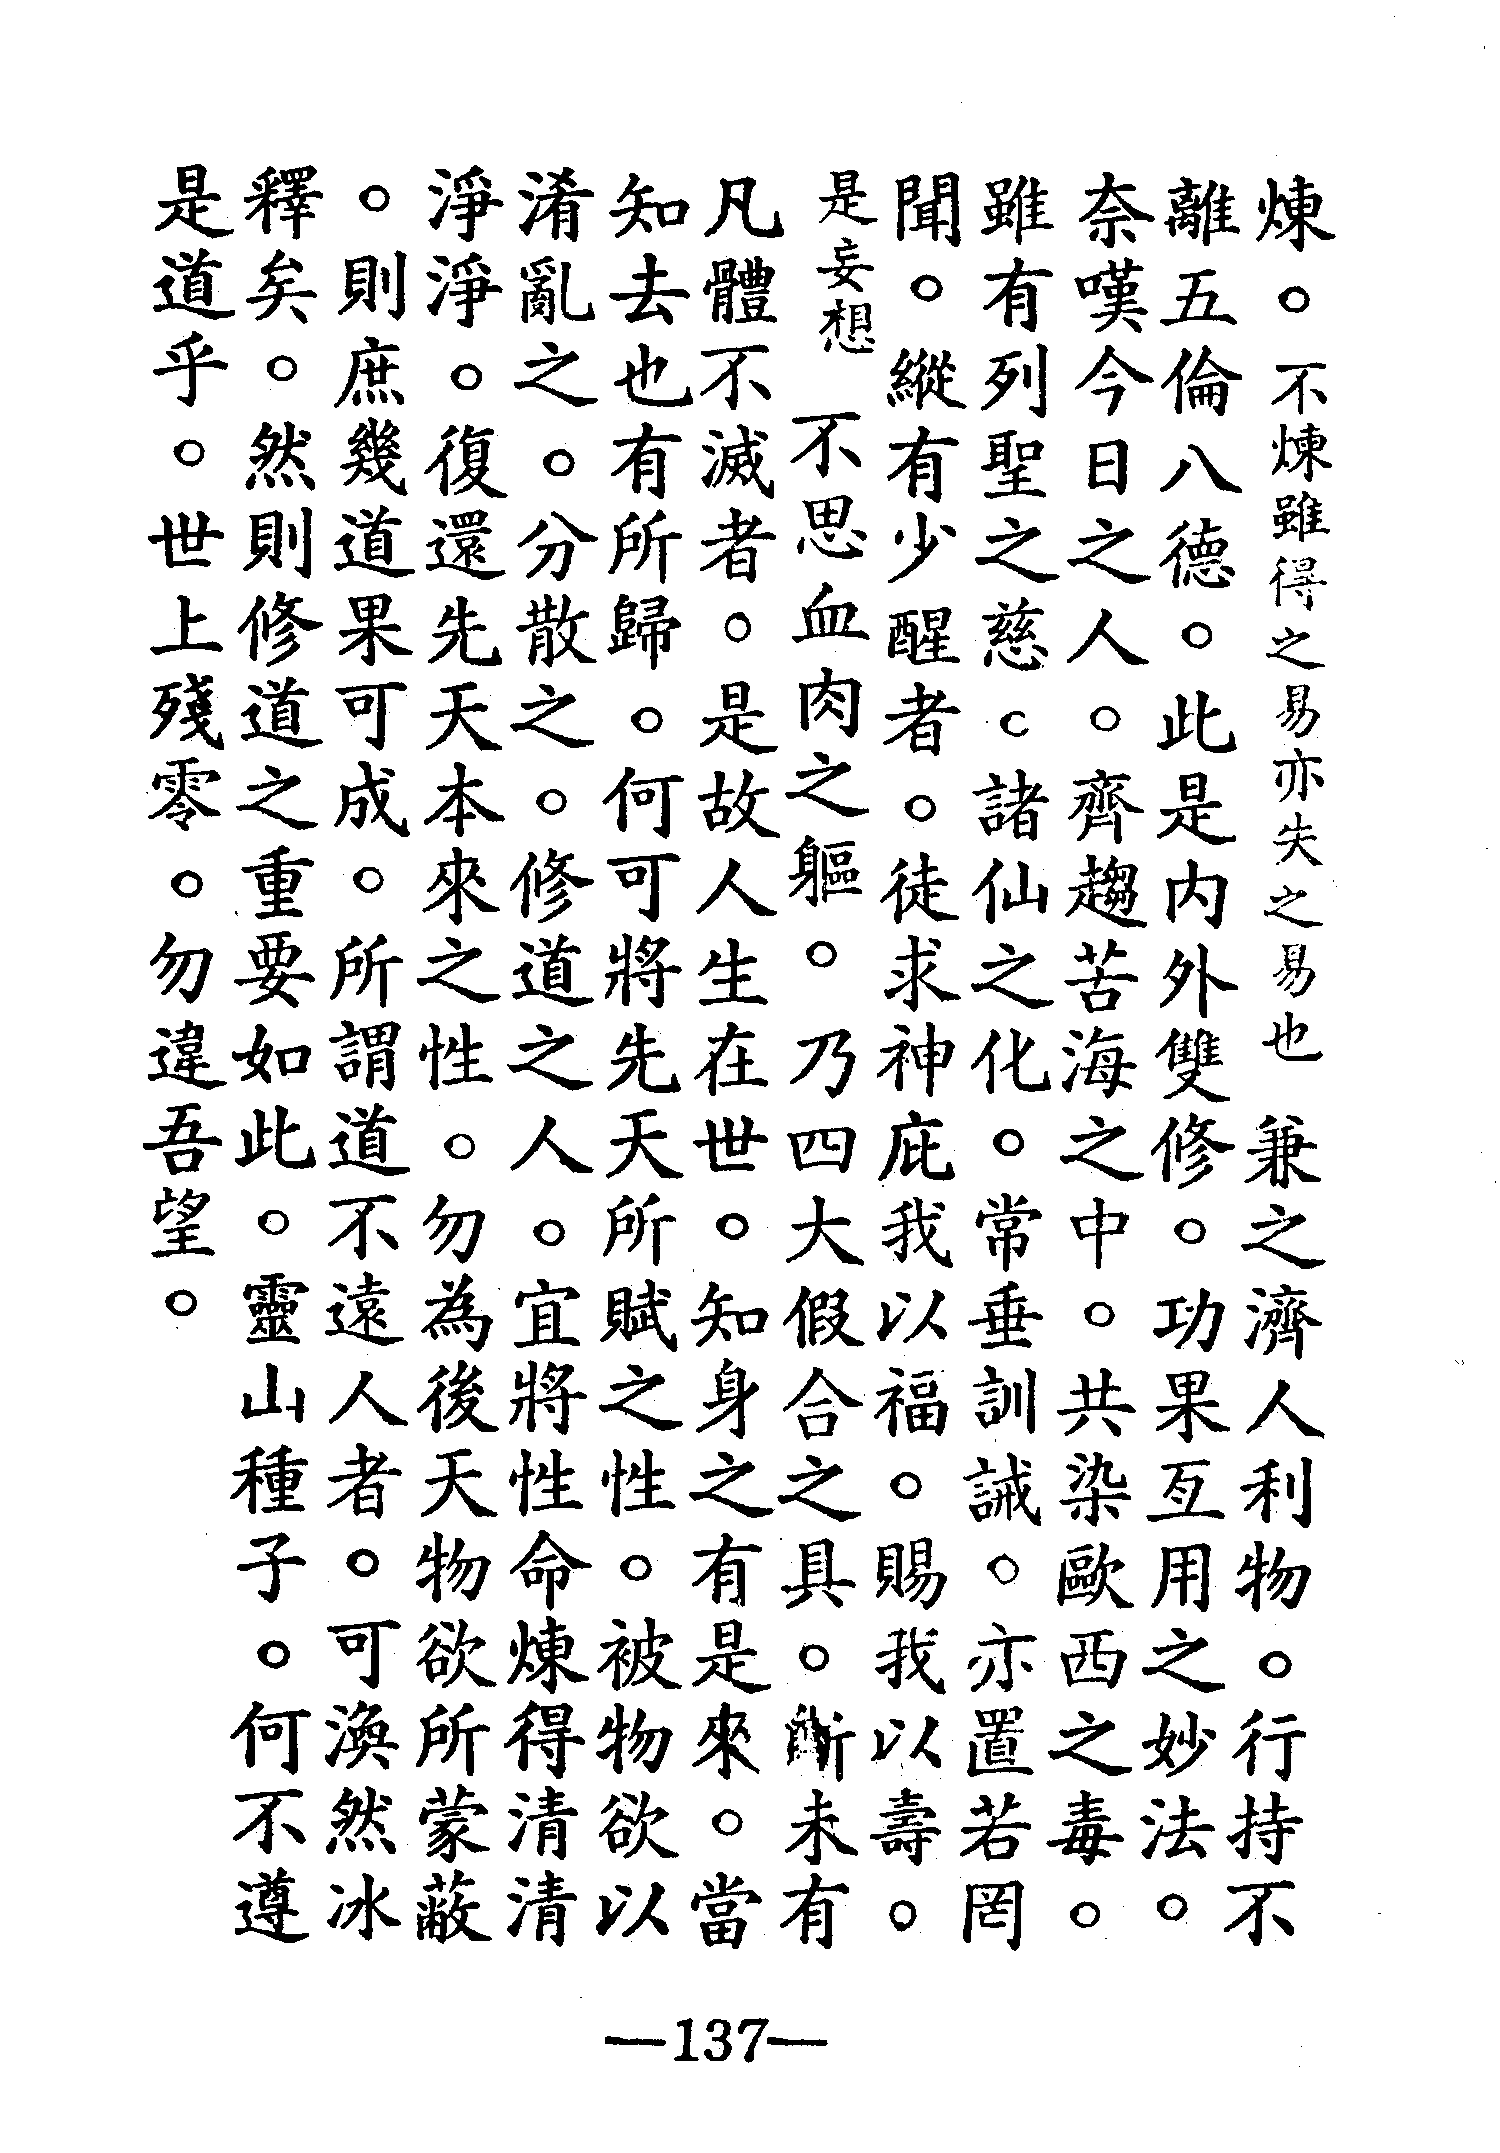 煉。不煉雖得之易亦失之易也 兼之濟人利物。行持不
離五倫八德。此是内外雙修。功果互用之妙法。
奈嘆今日之人。齊趨苦海之中。共染歐西之毒。
雖有列聖之慈。諸仙之化。常垂訓誡。亦置若罔
聞。縱有少醒者。徒求神庇我以福。賜我以壽。
是妄想 不思血肉之軀。乃四大假合之具。斷未有
凡體不滅者。是故人生在世。知身之有是來。當
知去也有所歸。何可將先天所賦之性。被物欲以
淆亂之。分散之。修道之人。宜將性命煉得清清
淨淨。復還先天本來之性。勿為後天物欲所蒙蔽
。則庶幾道果可成。所謂道不遠人者。可渙然冰
釋矣。然則修道之重要如此。靈山種子。何不遵
是道乎。世上殘零。勿違吾望。
—137—